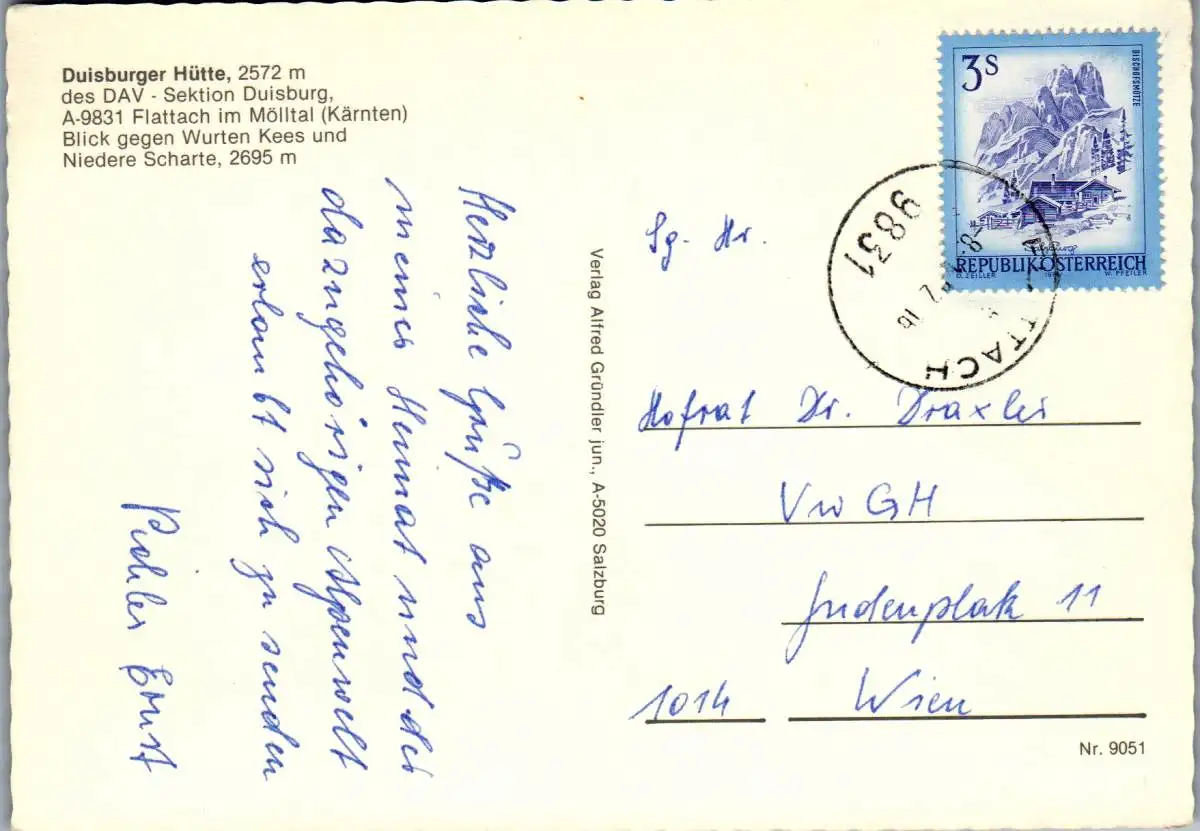 Duisburger Hütte, 2572 m
des DAV - Sektion Duisburg,
A-9831 Flattach im Mölltal (Kärnten)
Blick gegen Wurten Kees und
Niedere Scharte, 2695 m
Herzliche Grüße aus
meiner Heimat und der
dazugehörigen Alpenwelt
erlaubt sich zu senden
Pichler Ernst
Verlag Alfred Gründler jun., A-5020 Salzburg
3S
BISCHOFSMÜTZE
Salzburg
REPUBLIK ÖSTERREICH
O. ZEILLER
W. PFEILER
9831
TTACH
Sg. Hr.
Hofrat Dr. Draxler
VwGH
Judenplatz 11
1014 Wien
Nr. 9051